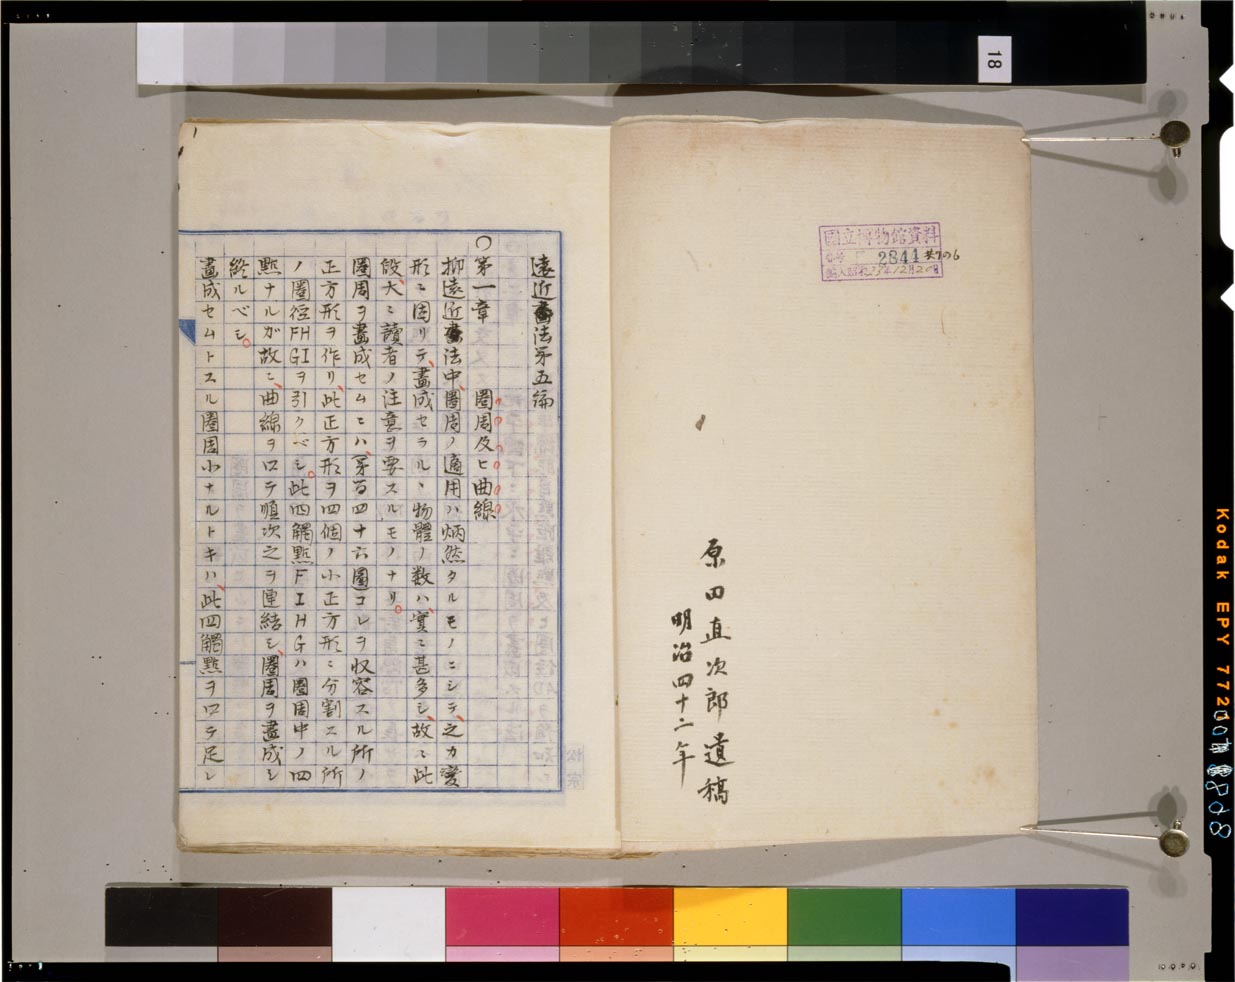 國立博物館資料
2844 共7の6
原田直次郎遺稿
明治四十二年
遠近畫法第五編
〇第一章　圏周及ヒ曲線
抑遠近畫法中、圏周ノ適用ハ炳然タルモノニシテ、之カ變
形ニ因リテ、畫成セラルヽ物體ノ数ハ、實ニ甚多シ、故ニ此
段、大ニ讀者ノ注意ヲ要スルモノナリ。
圏周ヲ畫成セムニハ、第百四十六圖コレヲ収容スル所ノ
正方形ヲ作リ、此正方形ヲ四個ノ小正方形ニ分割スル所
ノ圏徑FHGIヲ引クベシ。此四觸點FIHGハ圏周中ノ四
點ナルガ故ニ、曲線ヲ以テ順次之ヲ連結シ、圏周ヲ畫成シ
終ルベシ。
畫成セムトスル圏周小ナルトキハ、此四觸點ヲ以テ足レ
18
Kodak EPY 7721